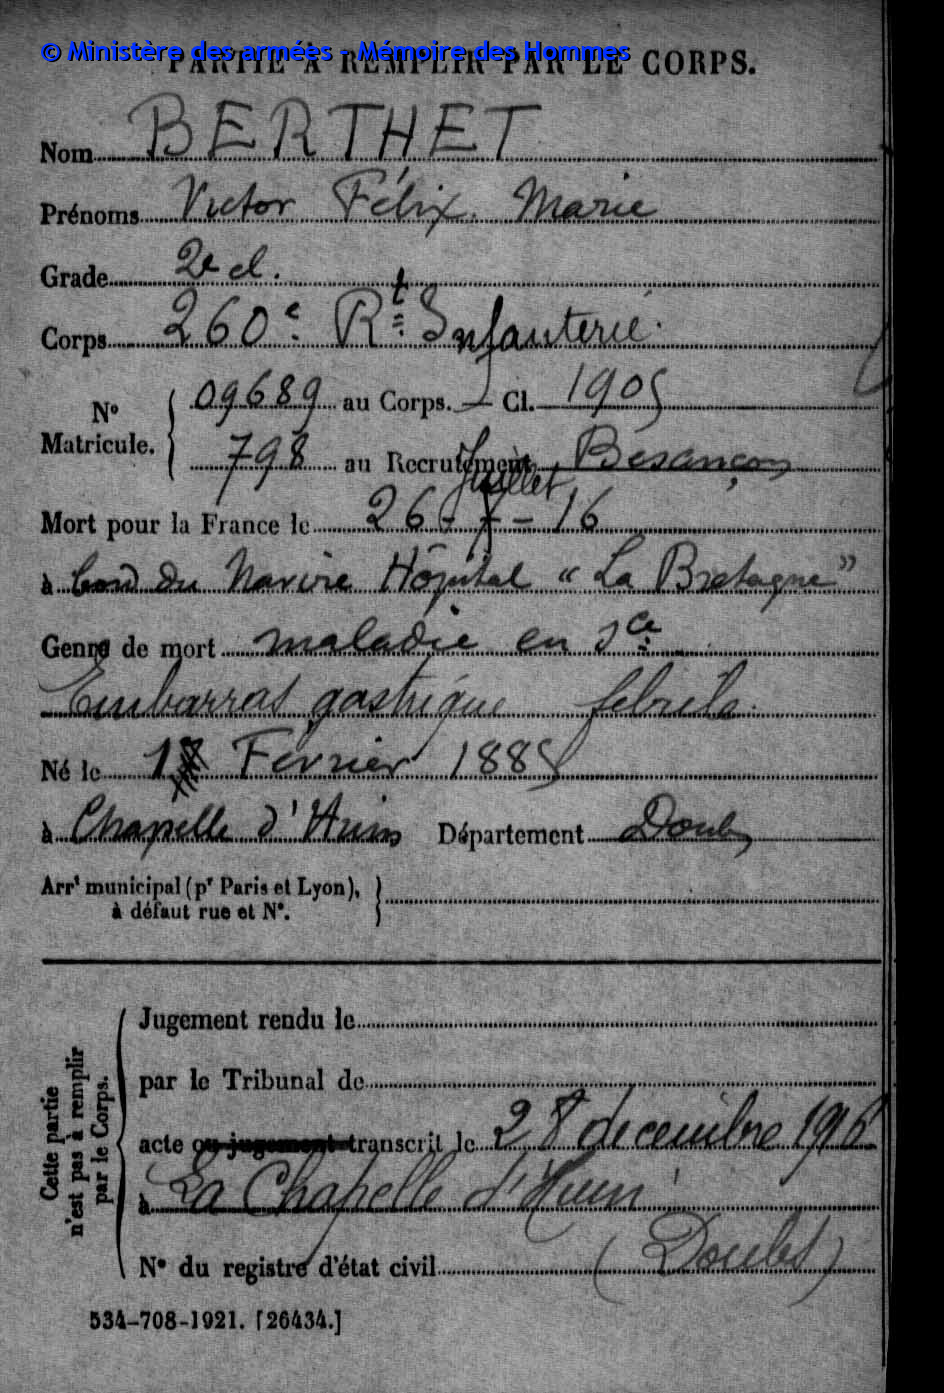 © Ministère des armées - Mémoire des Hommes
PARTIE À REMPLIR PAR LE CORPS.
Nom BERTHET
Prénoms Victor Félix Marie
Grade 2e cl.
Corps 260e Rt Infanterie
N° Matricule. 09689 au Corps. — Cl. 1905
798 au Recrutement Besançon
Juillet
Mort pour la France le 26-7-16
à bord du Navire Hôpital “La Bretagne”
Genre de mort maladie en sce
Embarras gastrique febrile
Né le Février 1885
à Chapelle d'Huin Département Doubs
Arrt municipal (pr Paris et Lyon),
à défaut rue et N°.
Cette partie n'est pas à remplir par le Corps.
Jugement rendu le
par le Tribunal de
acte ou jugement transcrit le 28 décembre 1916
à La Chapelle d'Huin
N° du registre d'état civil (Doubs)
534-708-1921. [26434.]